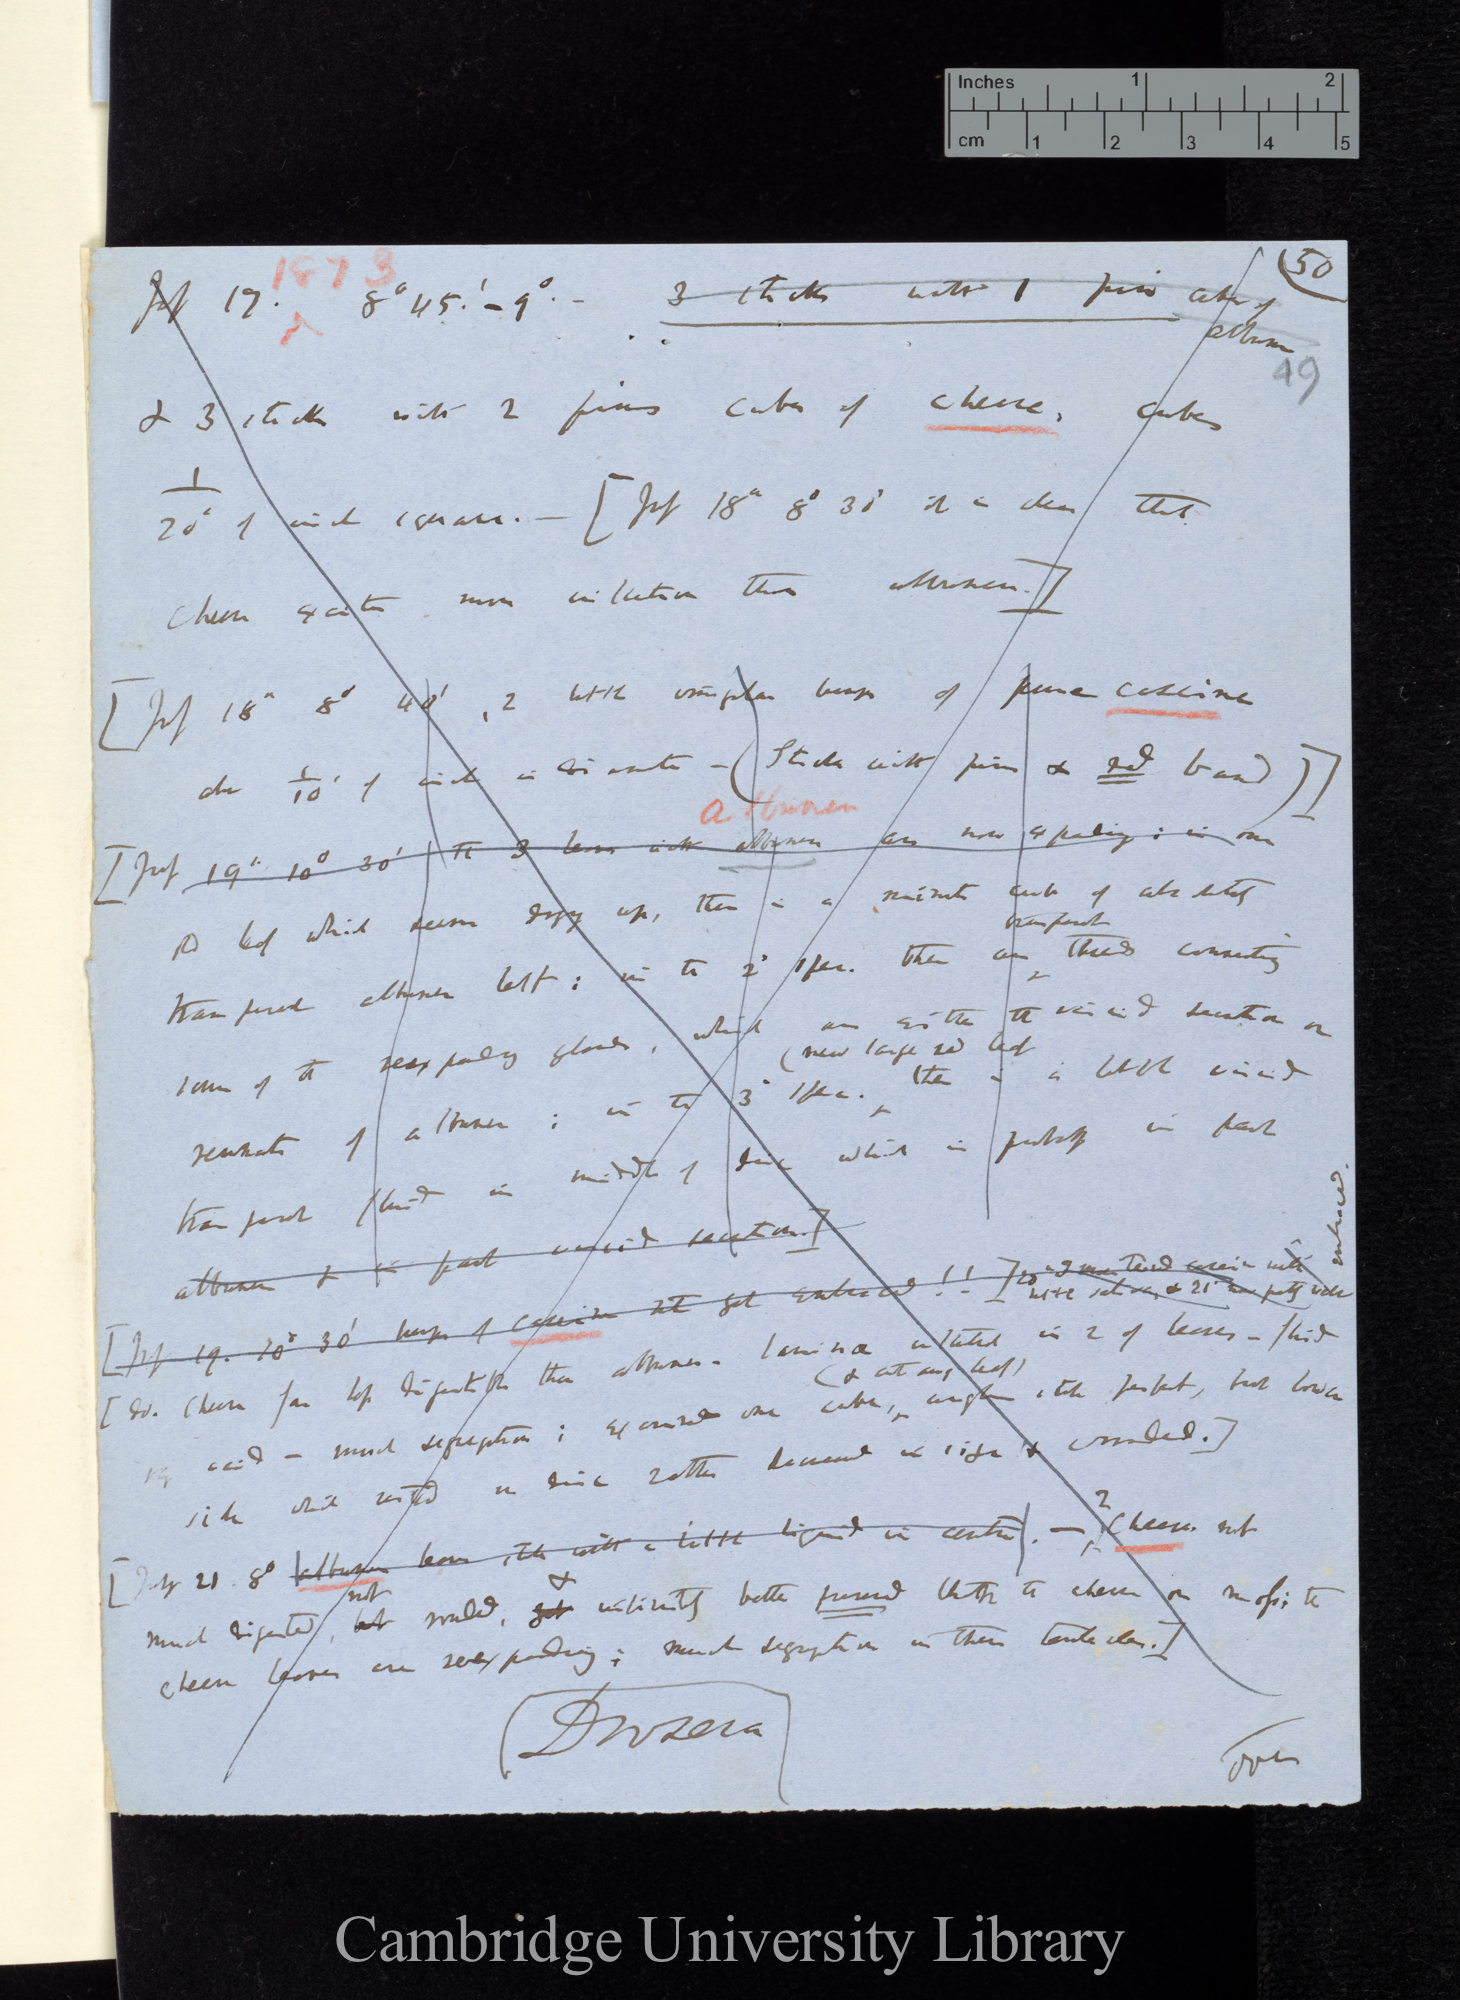 Inches 1 2
cm 1 2 3 4 5
50
1873
July 17. 8° 45.' – 9°. – 3 sticks with 1 pin cube of
albumen
49
& 3 sticks with 2 pins cubes of cheese, cubes
1/20 of inch square. – [July 18th 8° 30' it is clear that
cheese excites more inflection than albumen.]
[July 18th 8° 40', 2 little irregular heaps of pure caseine
1/10 of inch in diameter – (Sticks with pins & red band)]
albumen
[July 19th 10° 30' The 3 leaves with albumen are now expanding; in one
leaf which seems drying up, there is a minute cube of absolutely
transparent
transparent albumen left; in the 2d spec. there are threads connecting
some of the reexpanding glands, which are either the viscid secretion or
(new large red leaf
remnants of albumen; in the 3d spec. there is a little viscid
transparent fluid in middle of disc which is probably in part
albumen & in part viscid secretion.]
embraced.
[July 19. 10° 30' heaps of caseine not yet embraced!!]
[do. Cheese far less digestible than albumen – lamina inflected in 2 of leaves – fluid
(& cut away leaf)
acid – much segregation; examined one cube, angles still perfect, but lower
side which rested on disc rather decreased in size & rounded.]
[July 21. 8° albumen leaves still with a little liquid in centre. – Cheese not
not &
much digested, but rounded, yet infinitely better preserved than the cheese on moss; the
cheese leaves are reexpanding; much segregation in their tentacles.]
Drosera
over
Cambridge University Library